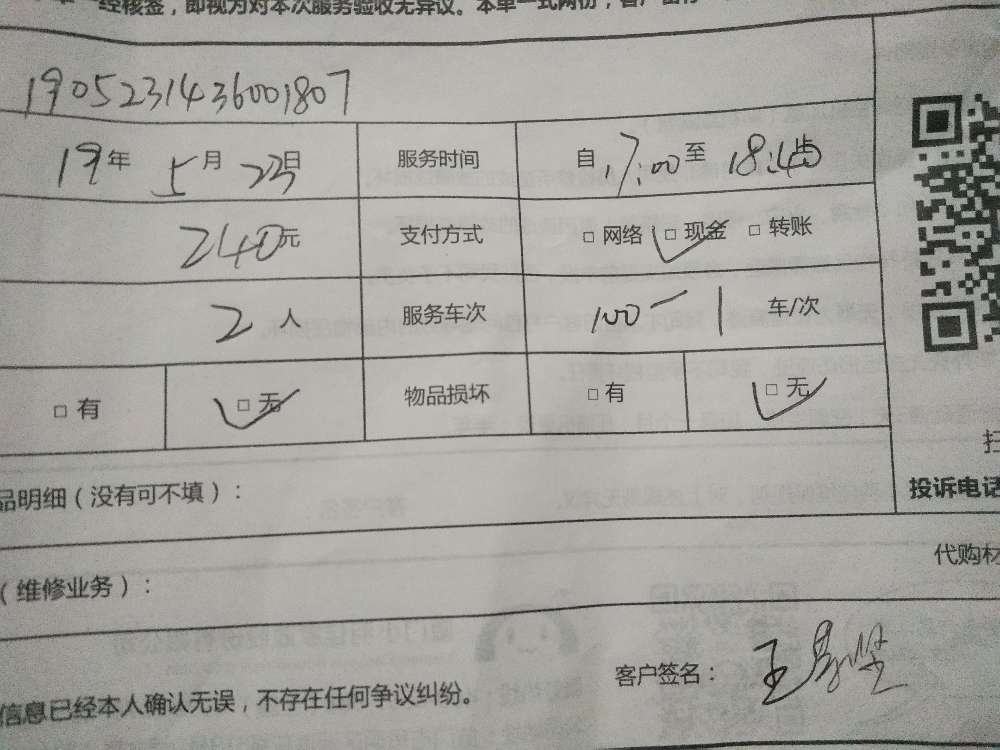 经核签，即视为对本次服务验收无异议。本单一式两份，客户留存
1905231436001807
19年 5月 23日 服务时间 自 17:00 至 18:
240元 支付方式 □ 网络 □ 现金 □ 转账
2 人 服务车次 100 一 1 车/次
□ 有 □ 无 物品损坏 □ 有 □ 无
品明细（没有可不填）：
投诉电话
代购材
（维修业务）：
客户签名： 王
信息已经本人确认无误，不存在任何争议纠纷。